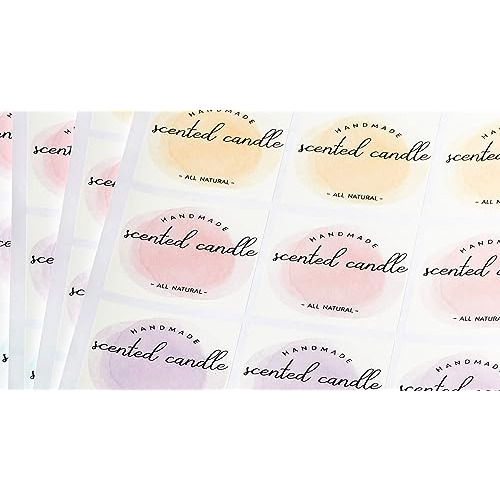 HANDMADE
scented candle
- ALL NATURAL -
HANDMADE
scented candle
- ALL NATURAL -
HANDMADE
scented candle
- ALL NATURAL -
HANDMADE
scented candle
- ALL NATURAL -
HANDMADE
scented candle
HANDMADE
scented candle